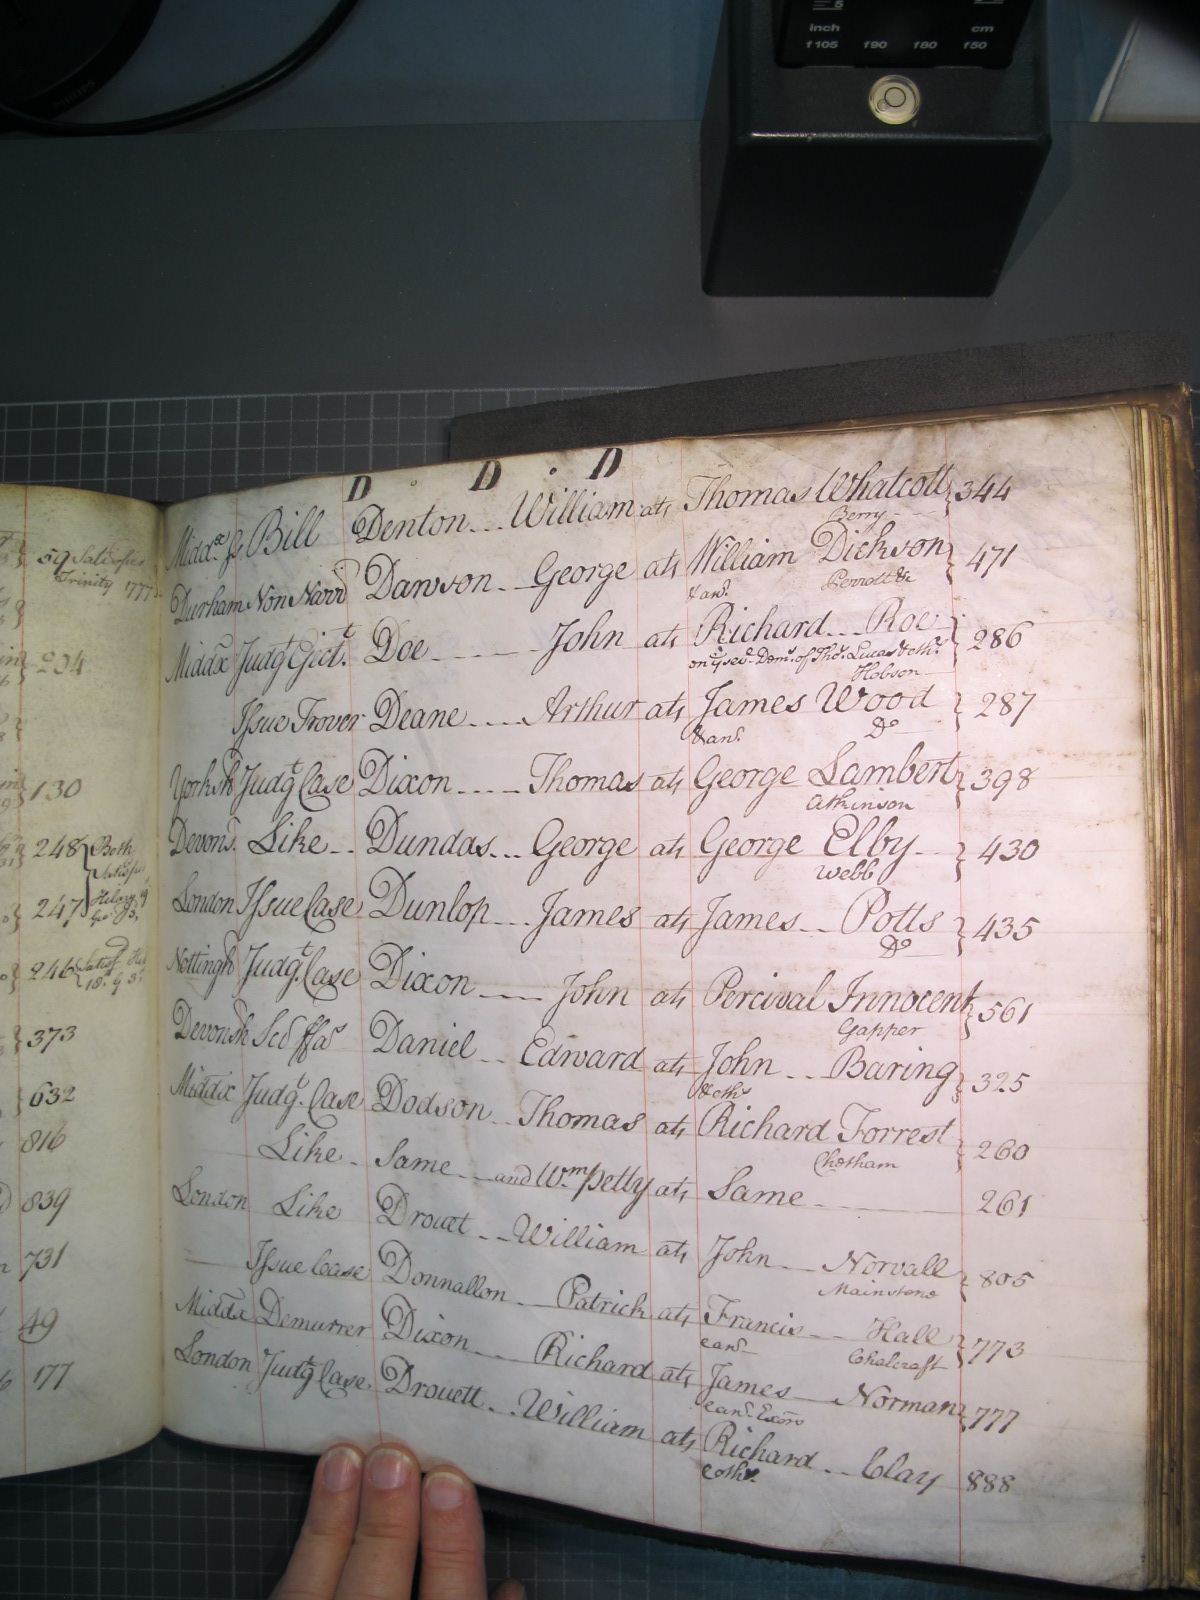 inch cm
f105 f90 f80 f50
PHILIPS
59 Satisfied
Trinity 1777
204
130
248 Both
247
246
373
632
816
839
731
49
177
D . D . D
Middx Bill Denton William ats Thomas Whatcott 344
Berry
Durham Non Narr Dawson George ats William Dickson 471
& anr. Perrott &c
Middx Judgt Eject. Doe John ats Richard Roe 286
on ye sevl Dems. of Thos. Lucas & othrs
Hobson
Issue Trover Deane Arthur ats James Wood 287
& anr. Do
Yorksh Judgt Case Dixon Thomas ats George Lambert 398
Atkinson
Devons. Like Dundas George ats George Elby 430
Webb
London Issue Case Dunlop James ats James Potts 435
Do
Nottingh Judgt. Case Dixon John ats Percival Innocent 561
Gapper
Devonsh Scd ffas Daniel Edward ats John Baring 325
& oths
Middx Judgt. Case Dodson Thomas ats Richard Forrest 260
Chetham
Like Same and Wm Petty ats Same 261
London Like Drouet William ats John Norvall 805
Mainstone
Issue Case Donnallon Patrick ats Francis Hall 773
& anr Chalcraft
Middx Demurrer Dixon Richard ats James Norman 777
& anr. Exors
London Judgt Case Drouett William ats Richard Clay 888
& othrs